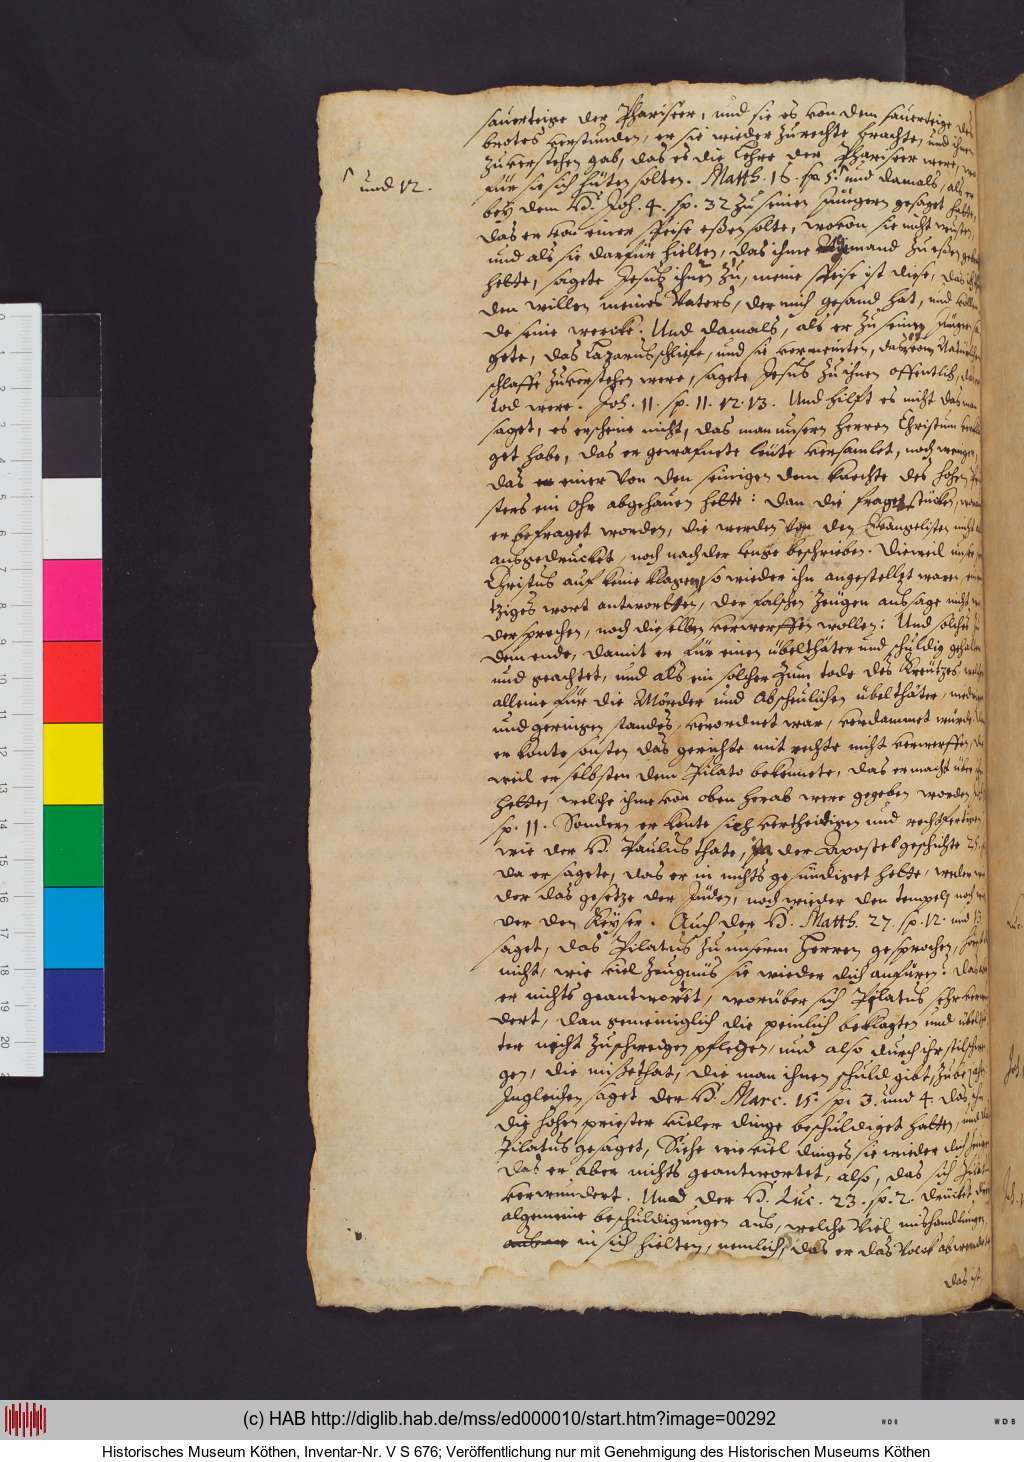 sauerteige der Phariseer, und sie es von dem sauerteige des
brotes verstunden, er sie wieder zurechte brachte, und ihnen
zuverstehen gab, das es die Lehre der Phariseer were,
für sie sich hüten solten. Matth. 16. sp. 5. und damals, als er
┌ und 12.
bey dem H. Joh. 4. sp. 32 zu seinen Jüngern gesaget hatte,
das er von einer Speise eßen solte, wovon sie nicht wusten,
und als sie darfür hielten, das ihme Jemand zu eßen
hette, sagete Jesus ihnen zu, meine Speise ist diese, das ich
den willen meines Vaters, der mich gesand hat, und
de seine wercke. Und damals, als er zu seinen Jüngern
gete, das Lazarus schliefe, und sie vermeinten, das vom Natürlichen
schlaffe zuverstehen were, sagete Jesus zu ihnen offentlich,
tod were. Joh. 11. sp. 11. 12. 13. Und hilft es nicht das man
saget, es erscheine nicht, das man unsern Herren Christum
get habe, das er gewafnete leüte versamlet, noch weniger,
das einer von den seinigen dem knechte des hohen
sters ein Ohr abgehauen hette: dan die fragstücken,
er befraget worden, die werden von den Evangelisten nicht
ausgedrucket, noch nach der lenge beschrieben. Dieweil unser
Christus auf keine klagen so wieder ihn angestellet waren,
tziges wort antwortten, der falschen Zeügen aussage nicht
dersprechen, noch dieselben verwerffen wollen: Und solches
dem ende, damit er für einen übelthäter und schuldig gehalten
und geachtet, und als ein solcher zum tode des Kreützes,
alleine für die Mörder und Abscheulichen übelthäter,
und geringen standes, verordnet war, verdammet würde.
er konte sonsten das gerichte mit rechte nicht verwerffen,
weil er selbsten dem Pilato bekennete, das er macht über
hette, welche ihme von oben herab were gegeben worden
sp. 11. Sondern er konte sich vertheidigen und rechtfertigen
wie der H. Paulus thate, in der Apostelgeschichte 25.
da er sagete, das er in nichts gesündiget hette, weder
der das gesetze der Jüden, noch wieder den tempel, noch
der den Keyser. Auch der H. Matth. 27. sp. 12. und 13.
saget, das Pilatus zu unserm Herren gesprochen,
nicht, wie viel Zeugnüs sie wieder dich anfüren?
er nichts geantwortet, worüber sich Pilatus sehr
dert, dan gemeiniglich die peinlich beklagten und
ter nicht zuschweigen pflegen, und also durch ihr
gen, die mißethat, die man ihnen schuld gibt,
Ingleichen saget der H. Marc. 15. sp. 3. und 4. das,
die hohen priester vieler dinge beschuldiget hatten, und
Pilatus gesaget, Siehe wie viel dinges sie wieder dich
das er aber nichts geantwortet, also, das sich
verwundert. Und der H. Luc. 23. sp. 2. drücket
algemeine beschuldigungen aus, welche viel mishandlungen
in sich hielten, nemlich, das er das Volck abwendete
das ist
(c) HAB http://diglib.hab.de/mss/ed000010/start.htm?image=00292
WDB
WDB
Historisches Museum Köthen, Inventar-Nr. V S 676; Veröffentlichung nur mit Genehmigung des Historischen Museums Köthen